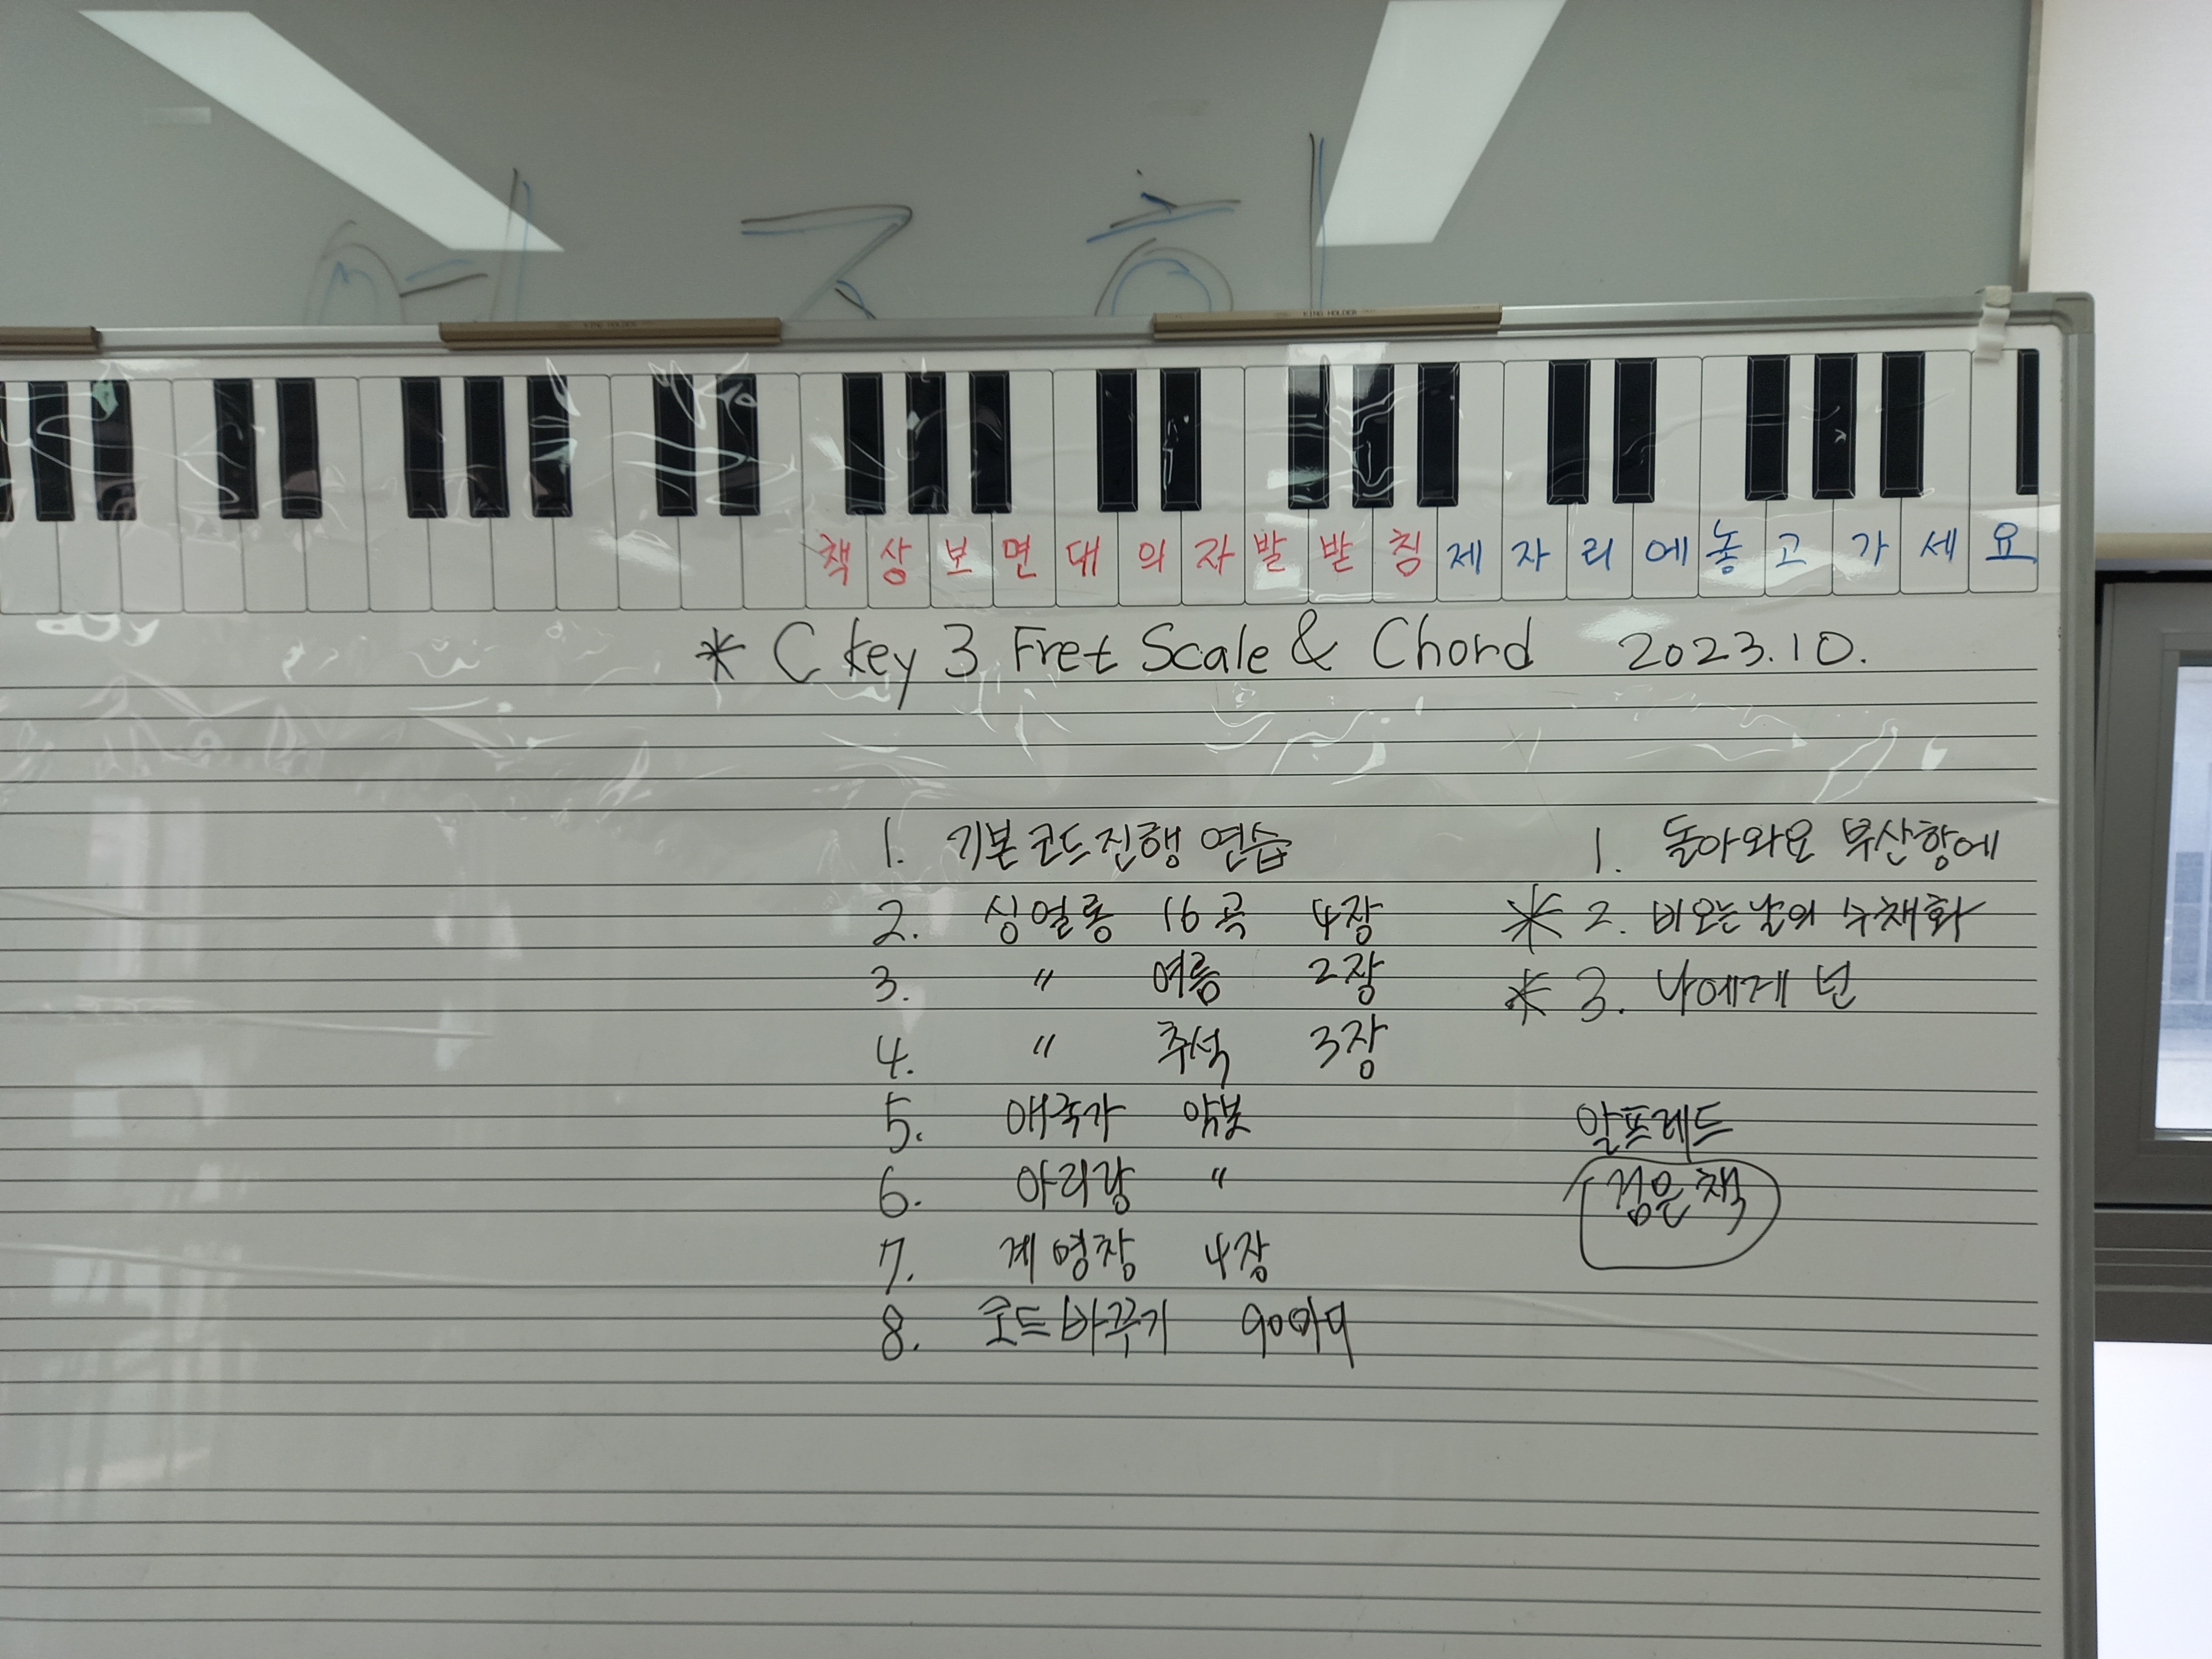 KING HOLDER
KING HOLDER
책상보면대의자발받침제자리에놓고가세요
* C key 3 Fret Scale & Chord 2023.10.
1. 기본코드진행 연습
2. 싱얼롱 16곡 4장
3. 〃 여름 2장
4. 〃 추석 3장
5. 애국가 악보
6. 아리랑 〃
7. 계명창 4장
8. 코드바꾸기 90마디
1. 돌아와요 부산항에
* 2. 비오는날의 수채화
* 3. 나에게 넌
알프레드
검은책